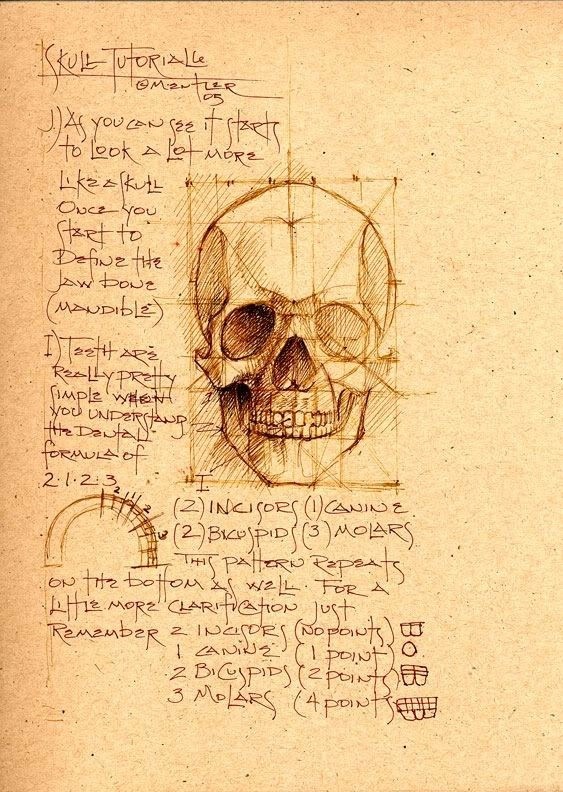 Skull Tutorial 6
©Mentler
05
J) As you can see it starts
to look a lot more
like a skull
once you
start to
define the
jaw bone
(mandible)
I) Teeth are
really pretty
simple when
you understand
the dental
formula of
2·1·2·3
I
2
(2) incisors (1) canine
(2) bicuspids (3) molars
3
This pattern repeats
on the bottom as well. For a
little more clarification just
remember 2 incisors (no points)
1 canine (1 point)
2 bicuspids (2 points)
3 molars (4 points)